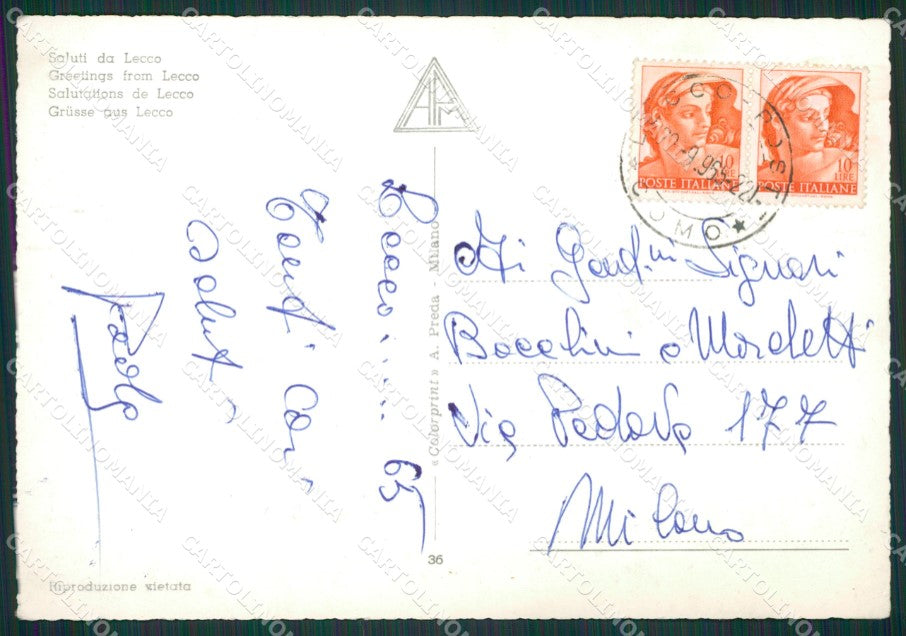 Saluti da Lecco
Greetings from Lecco
Salutations de Lecco
Grüsse aus Lecco
10
LIRE
POSTE ITALIANE
10
LIRE
POSTE ITALIANE
COMO
Lecco ..... 65
Tanti Cari
Saluti
Paolo
« Colorprint » A. Preda - Milano
36
Ai Gent/mi Signori
Bocchini e Mordetti
Via Padova 177
Milano
Riproduzione vietata
CARTOLINOMANIA